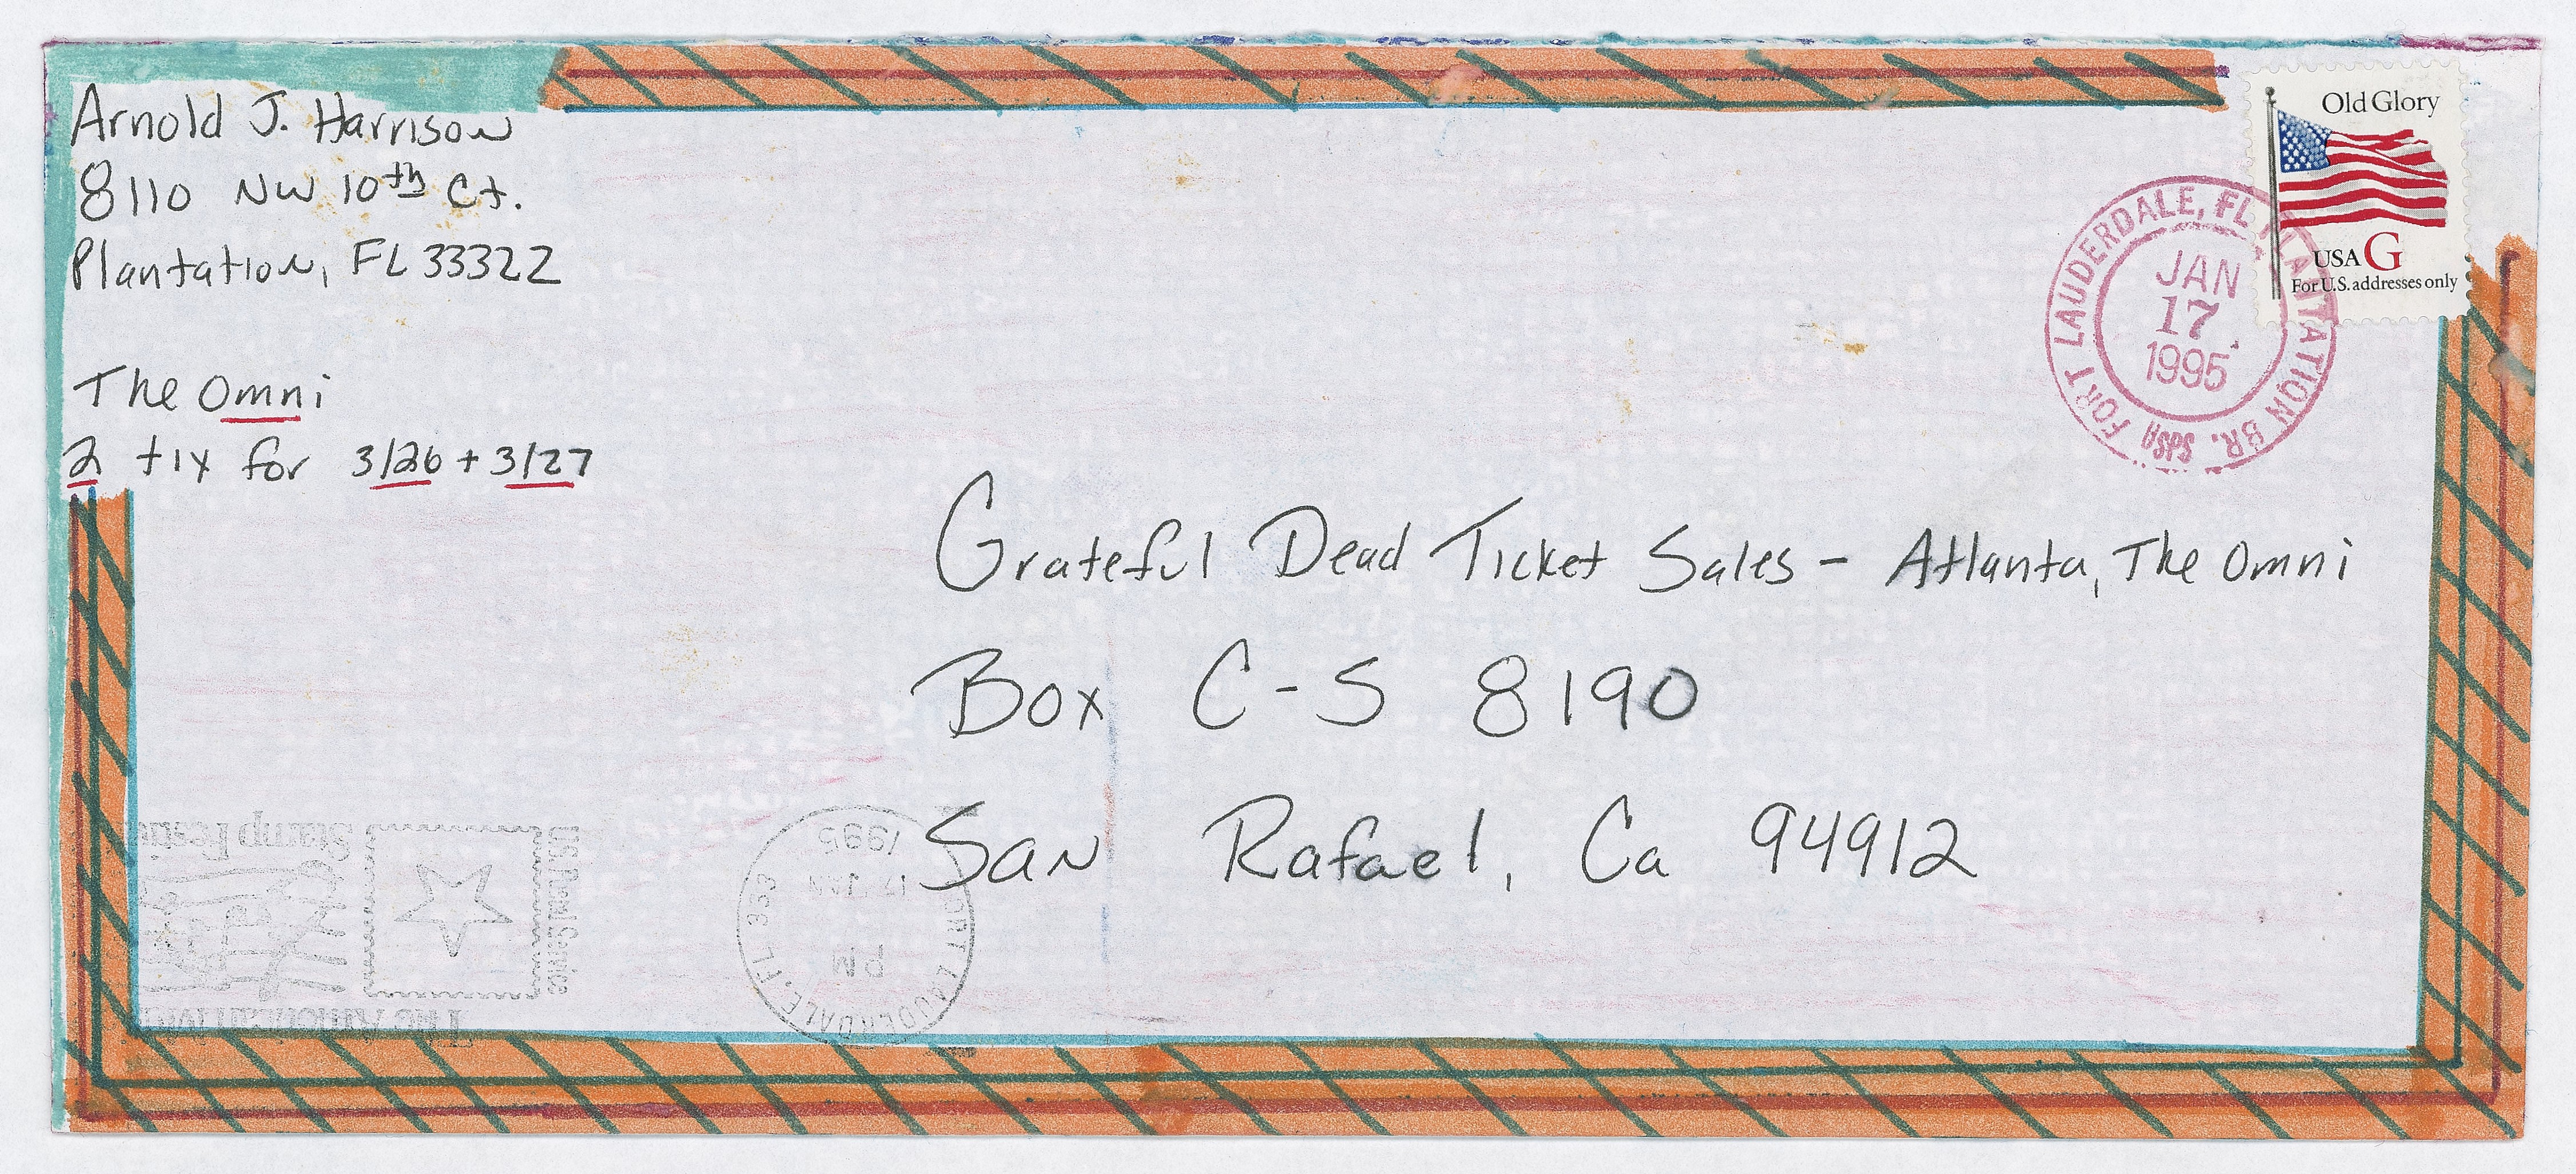 Arnold J. Harrison
8110 NW 10th Ct.
Plantation, FL 33322
The Omni
2 tix for 3/26 + 3/27
Old Glory
USA G
For U.S. addresses only
FORT LAUDERDALE, FL PLANTATION BR.
USPS
JAN
17
1995
Grateful Dead Ticket Sales - Atlanta, The Omni
Box C-S 8190
San Rafael, Ca 94912
FORT LAUDERDALE, FL 333
PM
17 JAN
1995
U.S. Postal Service
Stamp
The American